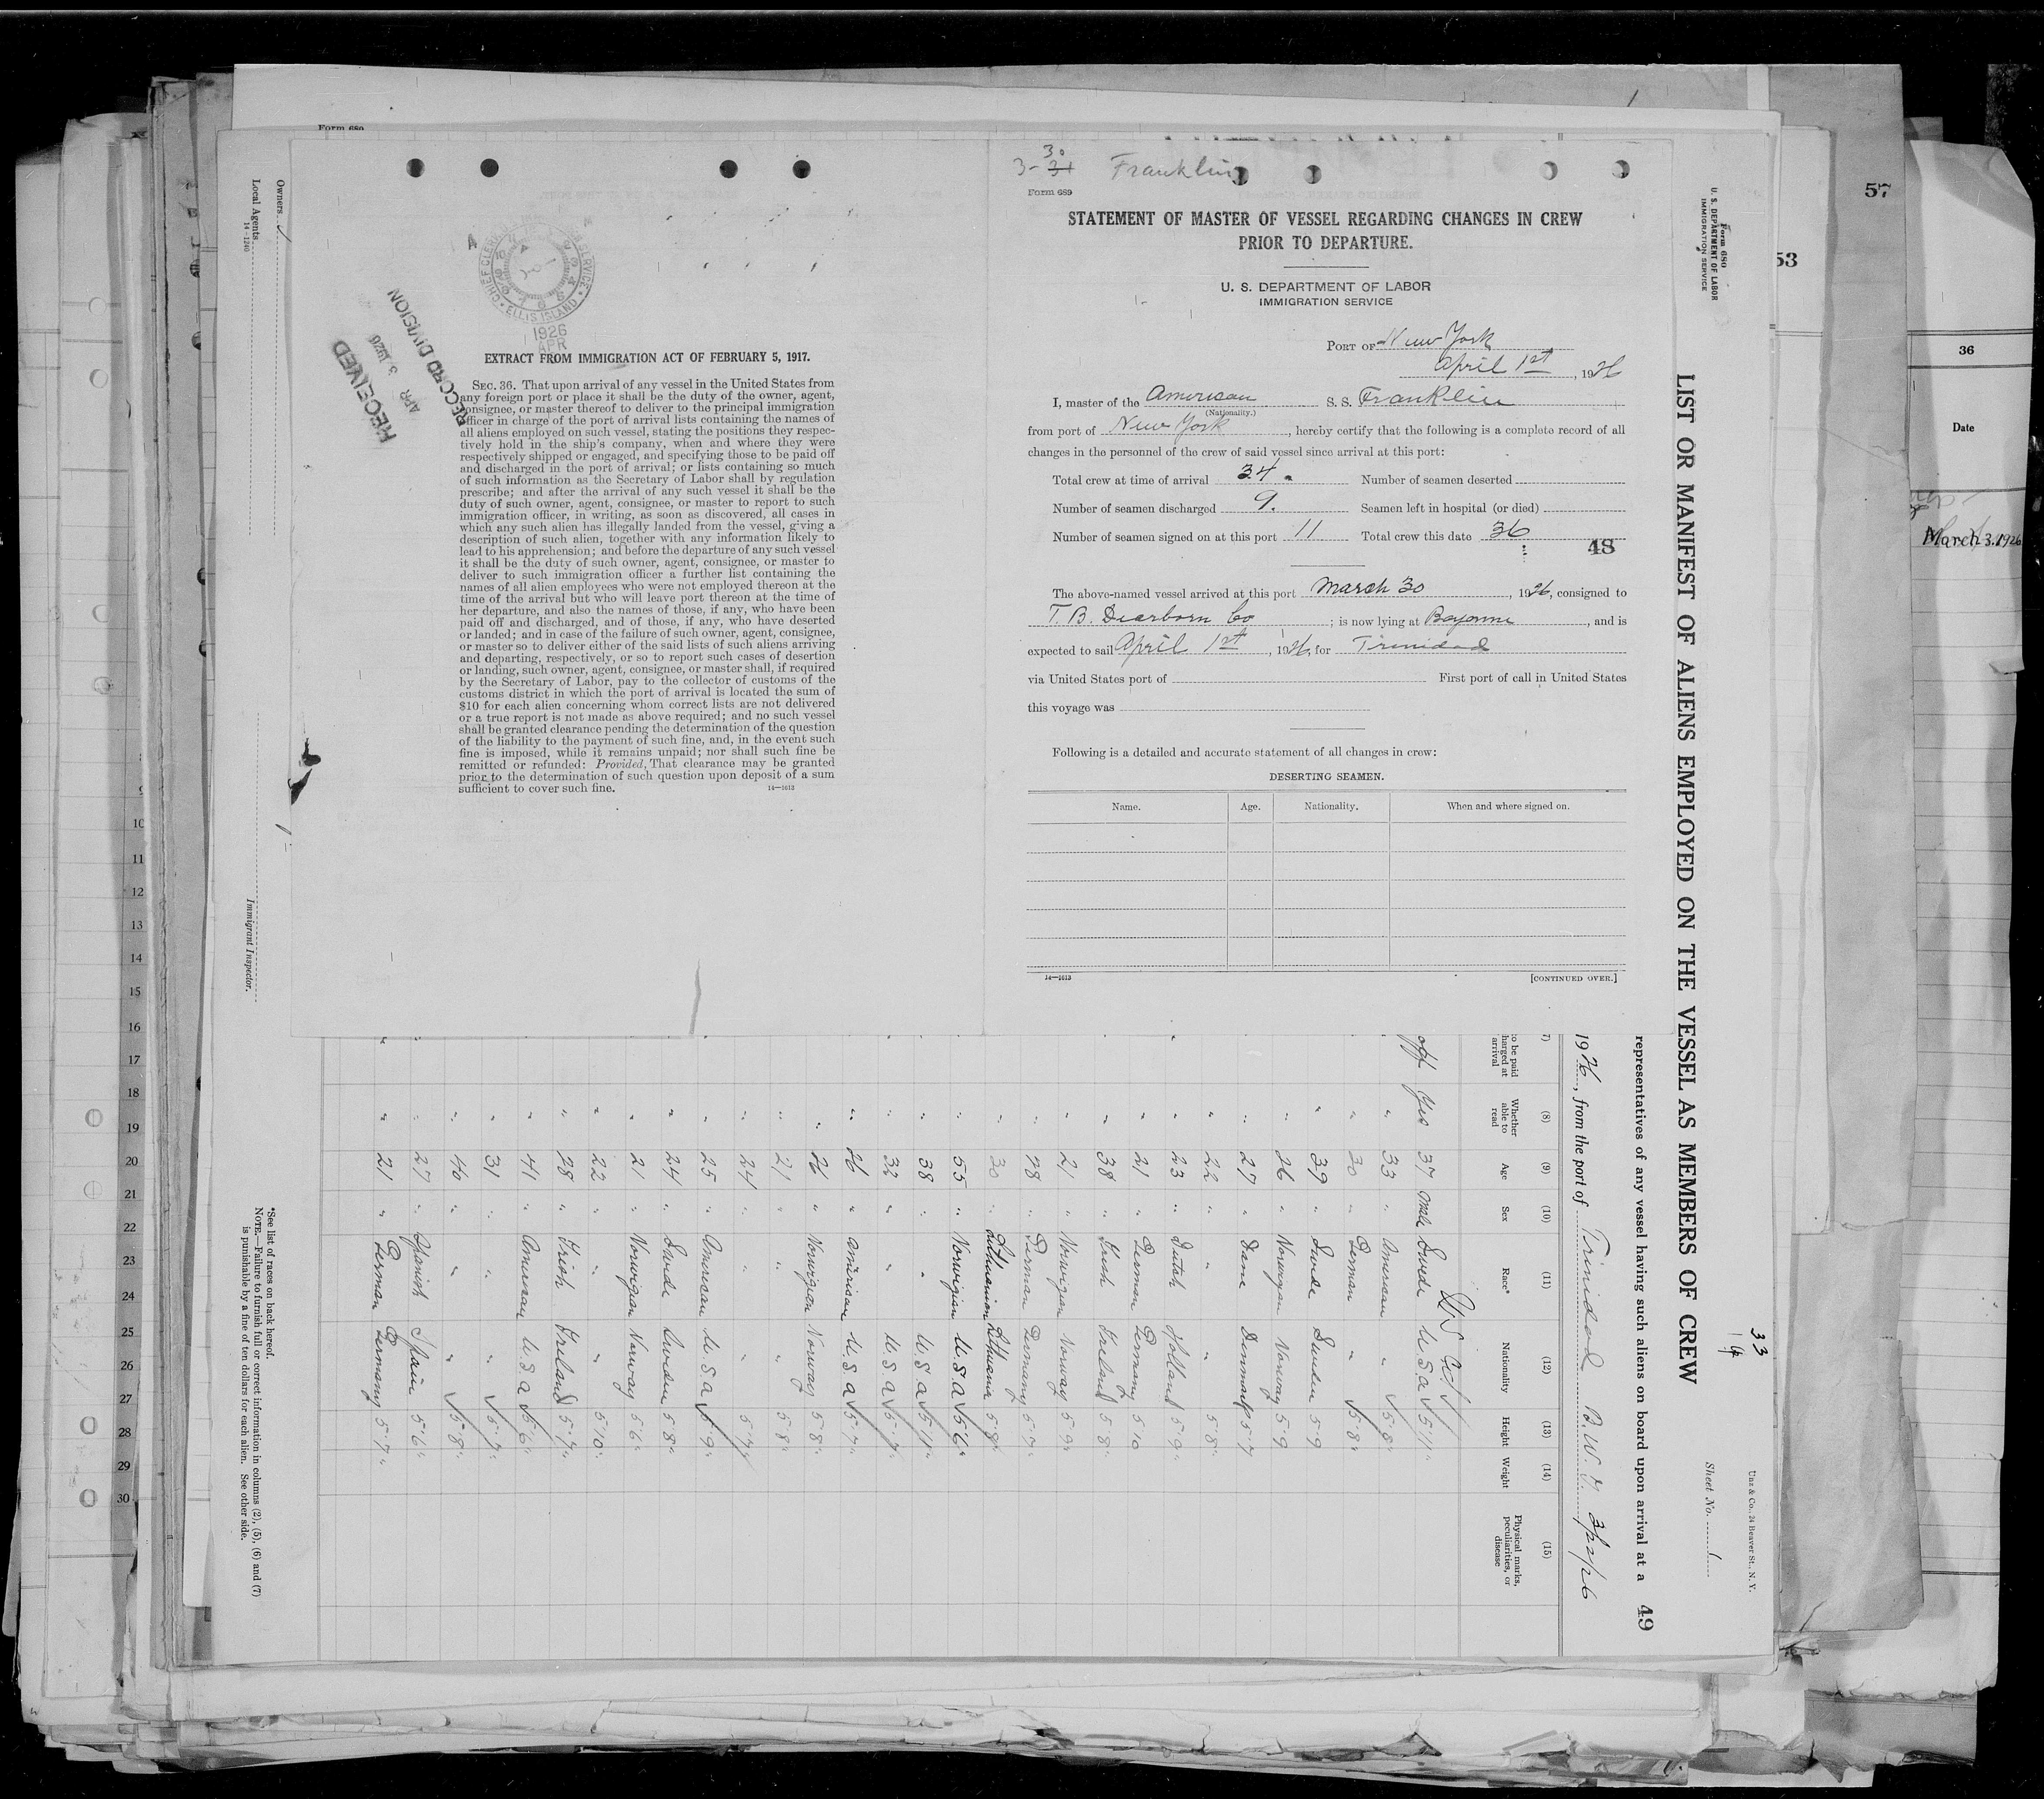 3-30
Franklin
Form 689
STATEMENT OF MASTER OF VESSEL REGARDING CHANGES IN CREW
PRIOR TO DEPARTURE.
U. S. DEPARTMENT OF LABOR
IMMIGRATION SERVICE
PORT OF New York
April 1st, 1926
I, master of the American S. S. Franklin
(Nationality.)
from port of New York, hereby certify that the following is a complete record of all
changes in the personnel of the crew of said vessel since arrival at this port:
Total crew at time of arrival 34. Number of seamen deserted
Number of seamen discharged 9. Seamen left in hospital (or died)
Number of seamen signed on at this port 11 Total crew this date 36
48
The above-named vessel arrived at this port March 30, 1926, consigned to
T. B. Dearborn Co; is now lying at Bayonne, and is
expected to sail April 1st, 1926, for Trinidad
via United States port of First port of call in United States
this voyage was
Following is a detailed and accurate statement of all changes in crew:
DESERTING SEAMEN.
Name. Age. Nationality. When and where signed on.
14—1613 [CONTINUED OVER.]
CHIEF CLERK
SERVICE
ELLIS ISLAND
1926
APR
RECEIVED
APR 3 1926
RECORD DIVISION
EXTRACT FROM IMMIGRATION ACT OF FEBRUARY 5, 1917.
SEC. 36. That upon arrival of any vessel in the United States from
any foreign port or place it shall be the duty of the owner, agent,
consignee, or master thereof to deliver to the principal immigration
officer in charge of the port of arrival lists containing the names of
all aliens employed on such vessel, stating the positions they respec-
tively hold in the ship's company, when and where they were
respectively shipped or engaged, and specifying those to be paid off
and discharged in the port of arrival; or lists containing so much
of such information as the Secretary of Labor shall by regulation
prescribe; and after the arrival of any such vessel it shall be the
duty of such owner, agent, consignee, or master to report to such
immigration officer, in writing, as soon as discovered, all cases in
which any such alien has illegally landed from the vessel, giving a
description of such alien, together with any information likely to
lead to his apprehension; and before the departure of any such vessel
it shall be the duty of such owner, agent, consignee, or master to
deliver to such immigration officer a further list containing the
names of all alien employees who were not employed thereon at the
time of the arrival but who will leave port thereon at the time of
her departure, and also the names of those, if any, who have been
paid off and discharged, and of those, if any, who have deserted
or landed; and in case of the failure of such owner, agent, consignee,
or master so to deliver either of the said lists of such aliens arriving
and departing, respectively, or so to report such cases of desertion
or landing, such owner, agent, consignee, or master shall, if required
by the Secretary of Labor, pay to the collector of customs of the
customs district in which the port of arrival is located the sum of
$10 for each alien concerning whom correct lists are not delivered
or a true report is not made as above required; and no such vessel
shall be granted clearance pending the determination of the question
of the liability to the payment of such fine, and, in the event such
fine is imposed, while it remains unpaid; nor shall such fine be
remitted or refunded: Provided, That clearance may be granted
prior to the determination of such question upon deposit of a sum
sufficient to cover such fine.
14—1613
Form 680
U. S. DEPARTMENT OF LABOR
IMMIGRATION SERVICE
Unz & Co. 24 Beaver St. N. Y.
Sheet No. 1
33
LIST OR MANIFEST OF ALIENS EMPLOYED ON THE VESSEL AS MEMBERS OF CREW
representatives of any vessel having such aliens on board upon arrival at a 49
1926, from the port of Trinidad B.W.I. 3/22/26
(7) (8) (9) (10) (11) (12) (13) (14) (15)
to be paid
harged at
arrival
Whether
able to
read
Age
Sex
Race*
Nationality
Height
Weight
Physical marks,
peculiarities, or
disease
off Yes 37 Male Swede U.S.A. 5'11"
" 33 " American " 5'8"
" 30 " German " 5'8"
" 39 " Swede Sweden 5'9
" 26 " Norwegian Norway 5'9
" 27 " Dane Denmark 5'7
" 22 " " " 5'8"
" 23 " Dutch Holland 5'9"
" 21 " German Germany 5'10
" 38 " Irish Ireland 5'8"
" 21 " Norwegian Norway 5'9"
" 28 " German Germany 5'7"
" 30 " Lithuanian Lithuania 5'8"
" 55 " Norwegian U.S.A 5'6"
" 38 " " U.S.A 5'11"
" 32 " " U.S.A 5'7"
" 26 " American U.S.A 5'7"
" 26 " Norwegian Norway 5'8"
" 21 " " " 5'8"
" 24 " " " 5'7"
" 25 " American U.S.A 5'9"
" 24 " Swede Sweden 5'8"
" 21 " Norwegian Norway 5'6"
" 22 " " " 5'10"
" 28 " Irish Ireland 5'7"
" 41 " American U.S.A 5'6"
" 31 " " " 5'7"
" 40 " " " 5'8"
" 27 " Spanish Spain 5'6"
" 21 " German Germany 5'7"
Owners
Local Agents
14-1240
Immigrant Inspector.
*See list of races on back hereof.
NOTE.—Failure to furnish full or correct information in columns (2), (5), (6) and (7)
is punishable by a fine of ten dollars for each alien. See other side.
Form 680
10
11
12
13
14
15
16
17
18
19
20
21
22
23
24
25
26
27
28
29
30
57
53
36
Date
March 3. 1926